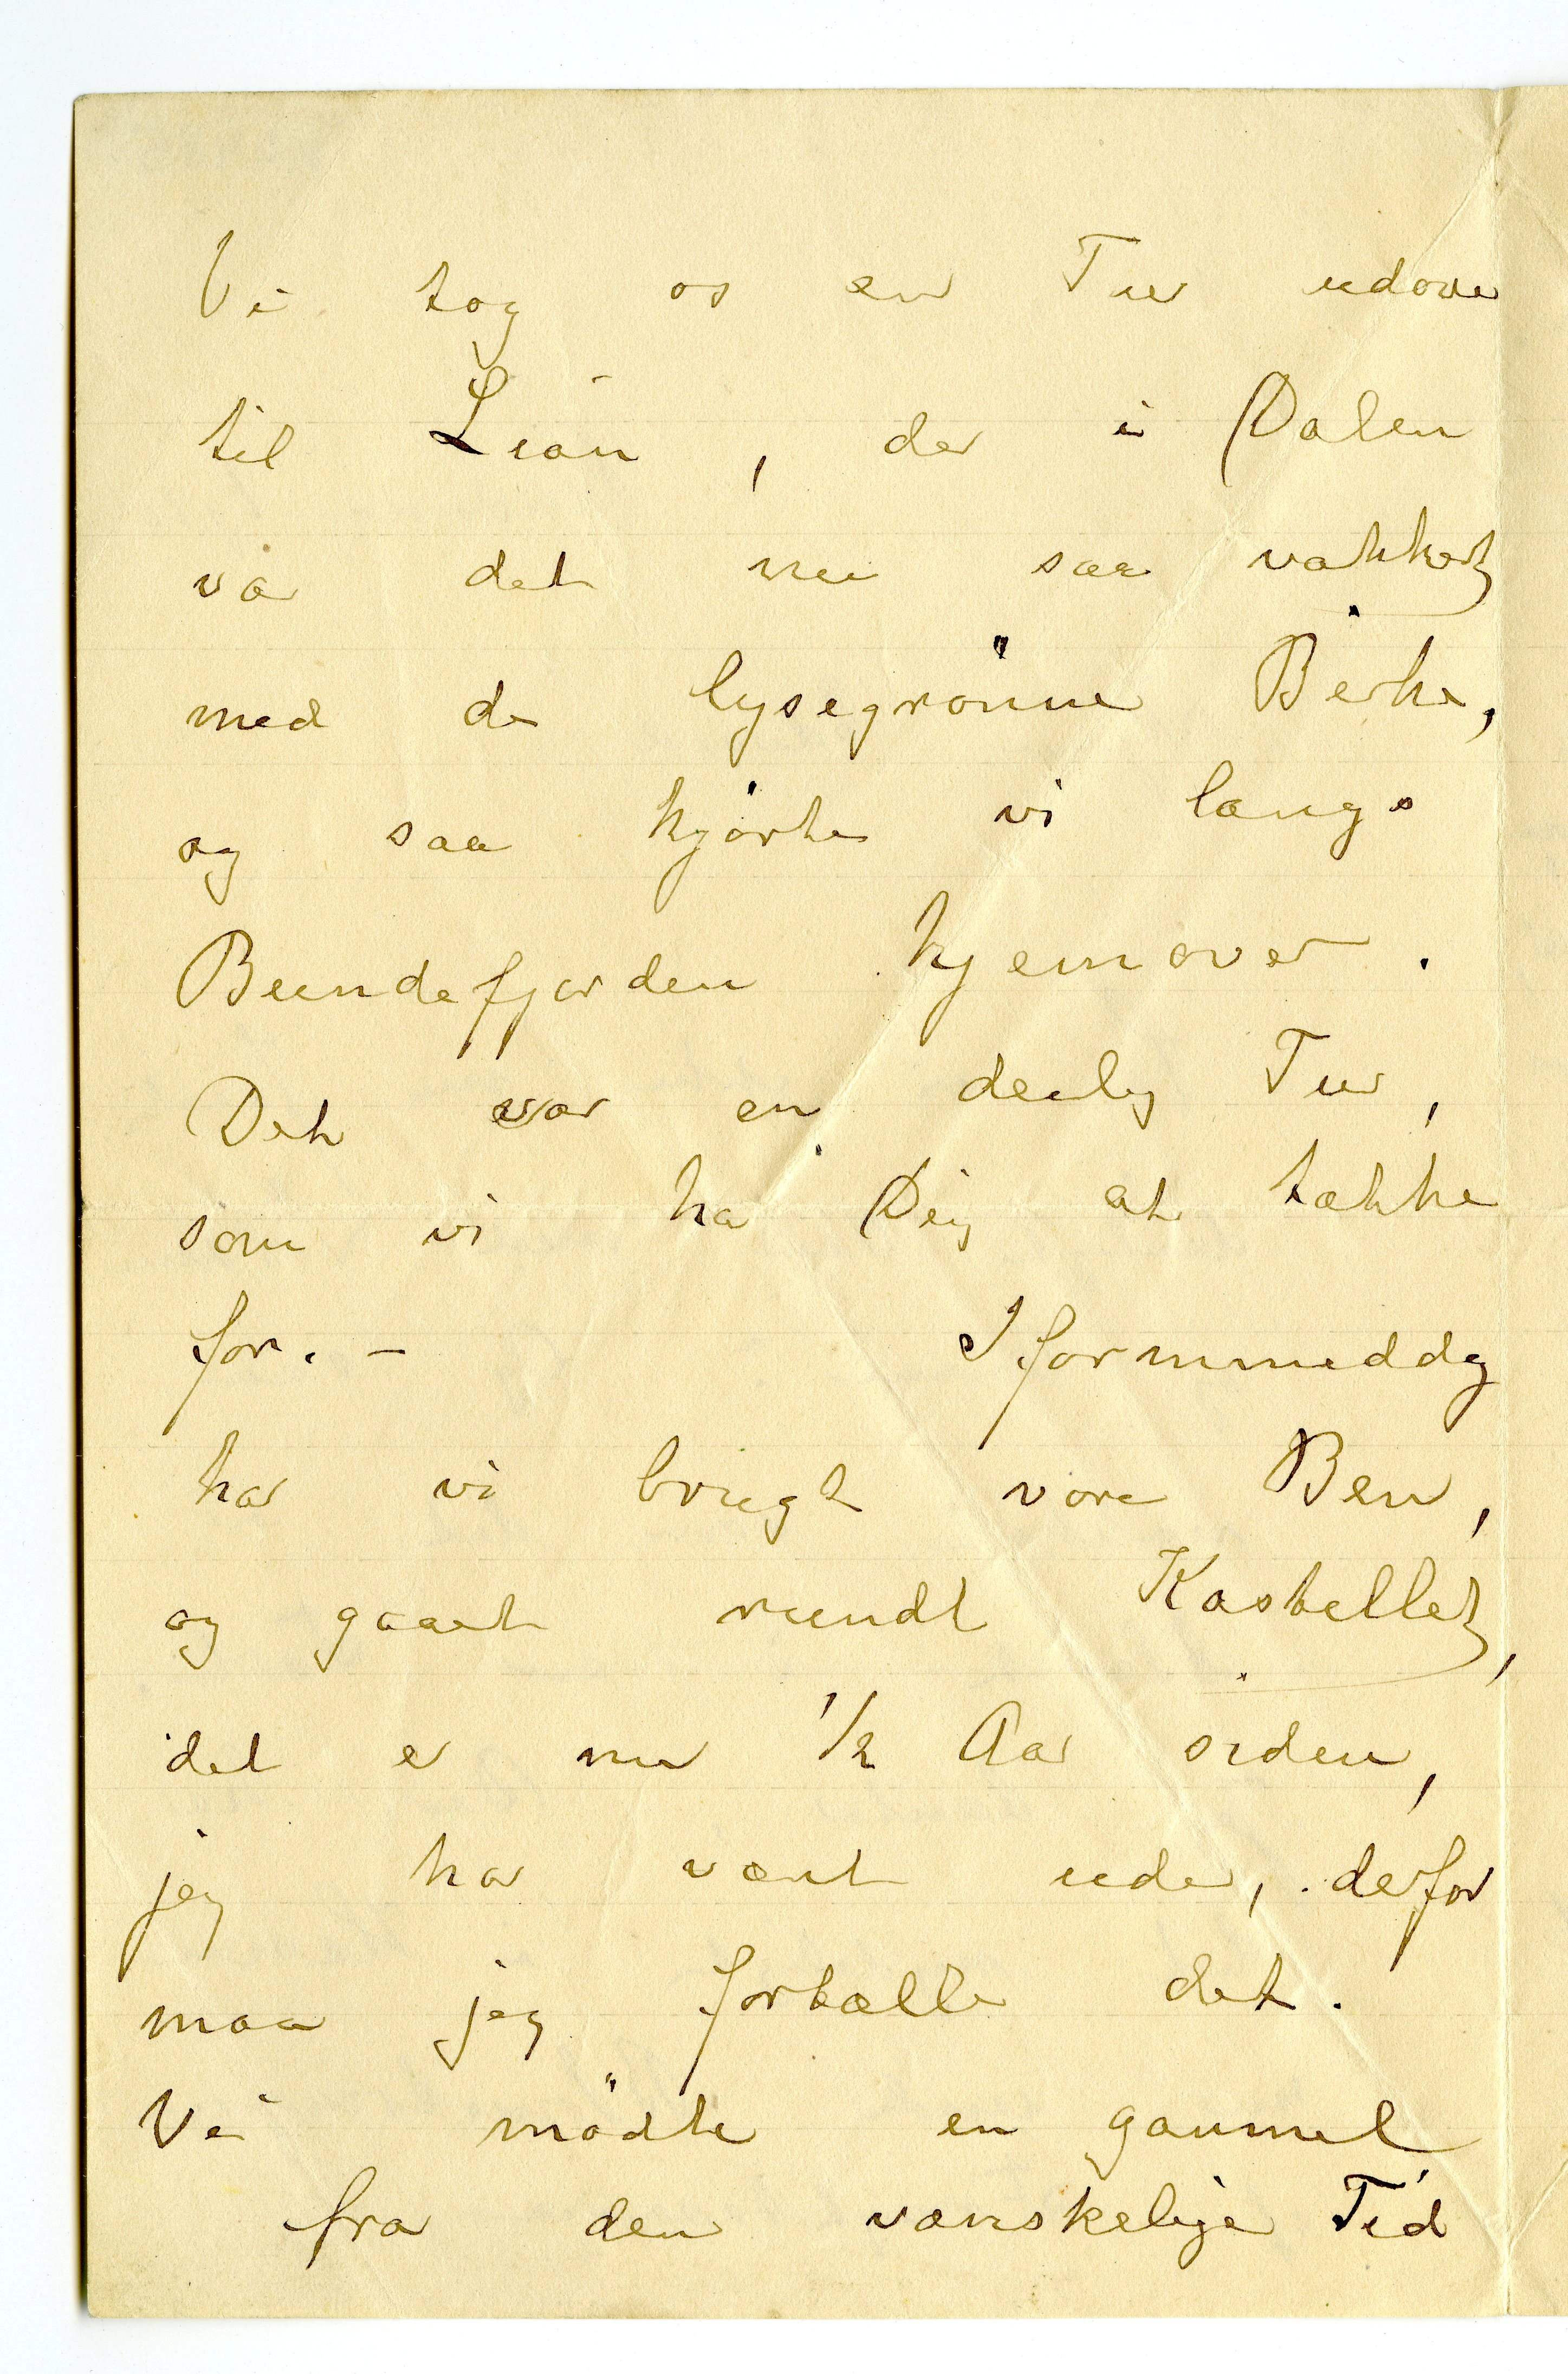 Vi tog os en Tur udover
til Lian, der i Dalen
var det nu saa vakkert
med de lysegrönne Birke,
og saa kjörte vi langs
Bundefjorden hjemover.
Det var en deilig Tur,
som vi har Dig at takke
for. – I formiddag
har vi brugt vore Ben,
og gaaet rundt Kastellet,
det er nu 1/2 Aar siden,
jeg har vært ude, derfor
maa jeg fortælle det.
Vi mödte en gammel
fra den vanskelige Tid